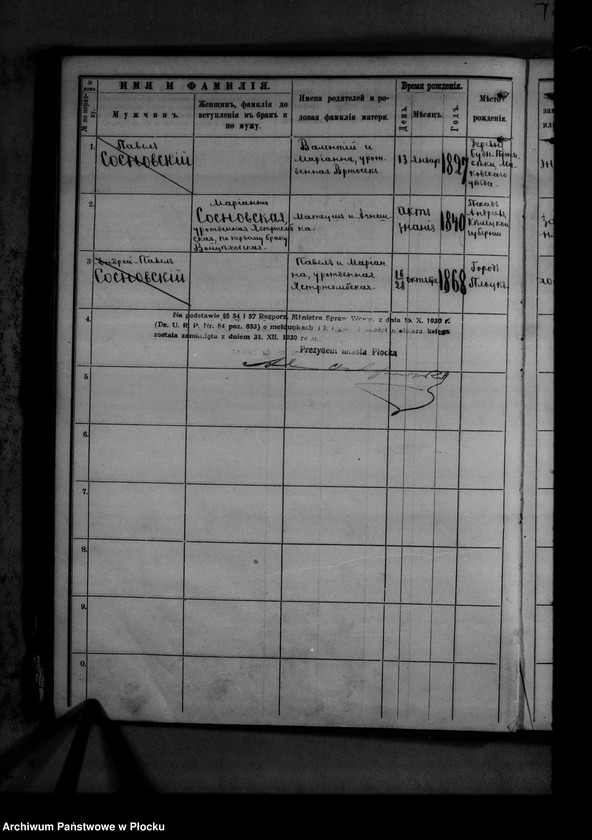 ИМЯ И ФАМИЛІЯ.
Мужчинъ.
Женщинъ, фамилія до
вступленія въ бракъ и
по мужу.
Имена родителей и ро-
довая фамилія матери.
Время рожденія.
День.
Мѣсяцъ.
Годъ.
Мѣсто
рожденія.
1.
Павелъ
Сосновскій
Валентій и
Маріанна, урож-
денная
13
Январ
1827
2.
Маріанна
Сосновская,
урожденная Ястржемб
ская, по первому браку
Матеушъ и Агнеш
ка.
Актъ
знанія
1840
губерніи
3
Андрей-Павелъ
Сосновскій
Павелъ и Маріан
на, урожденная
Ястржембская.
16
28
октября
1868
Городъ
Плоцкъ.
4
Na podstawie §§ 54 i 57 Rozporz. Ministra Spraw Wewn. z dnia 16. X. 1930 r.
(Dz. U. R. P. Nr. 84 poz. 653) o meldunkach i księgi
została zamknięta z dniem 31. XII. 1930 roku.
Prezydent miasta Płocka
5
6.
7.
8.
9.
0.
Archiwum Państwowe w Płocku